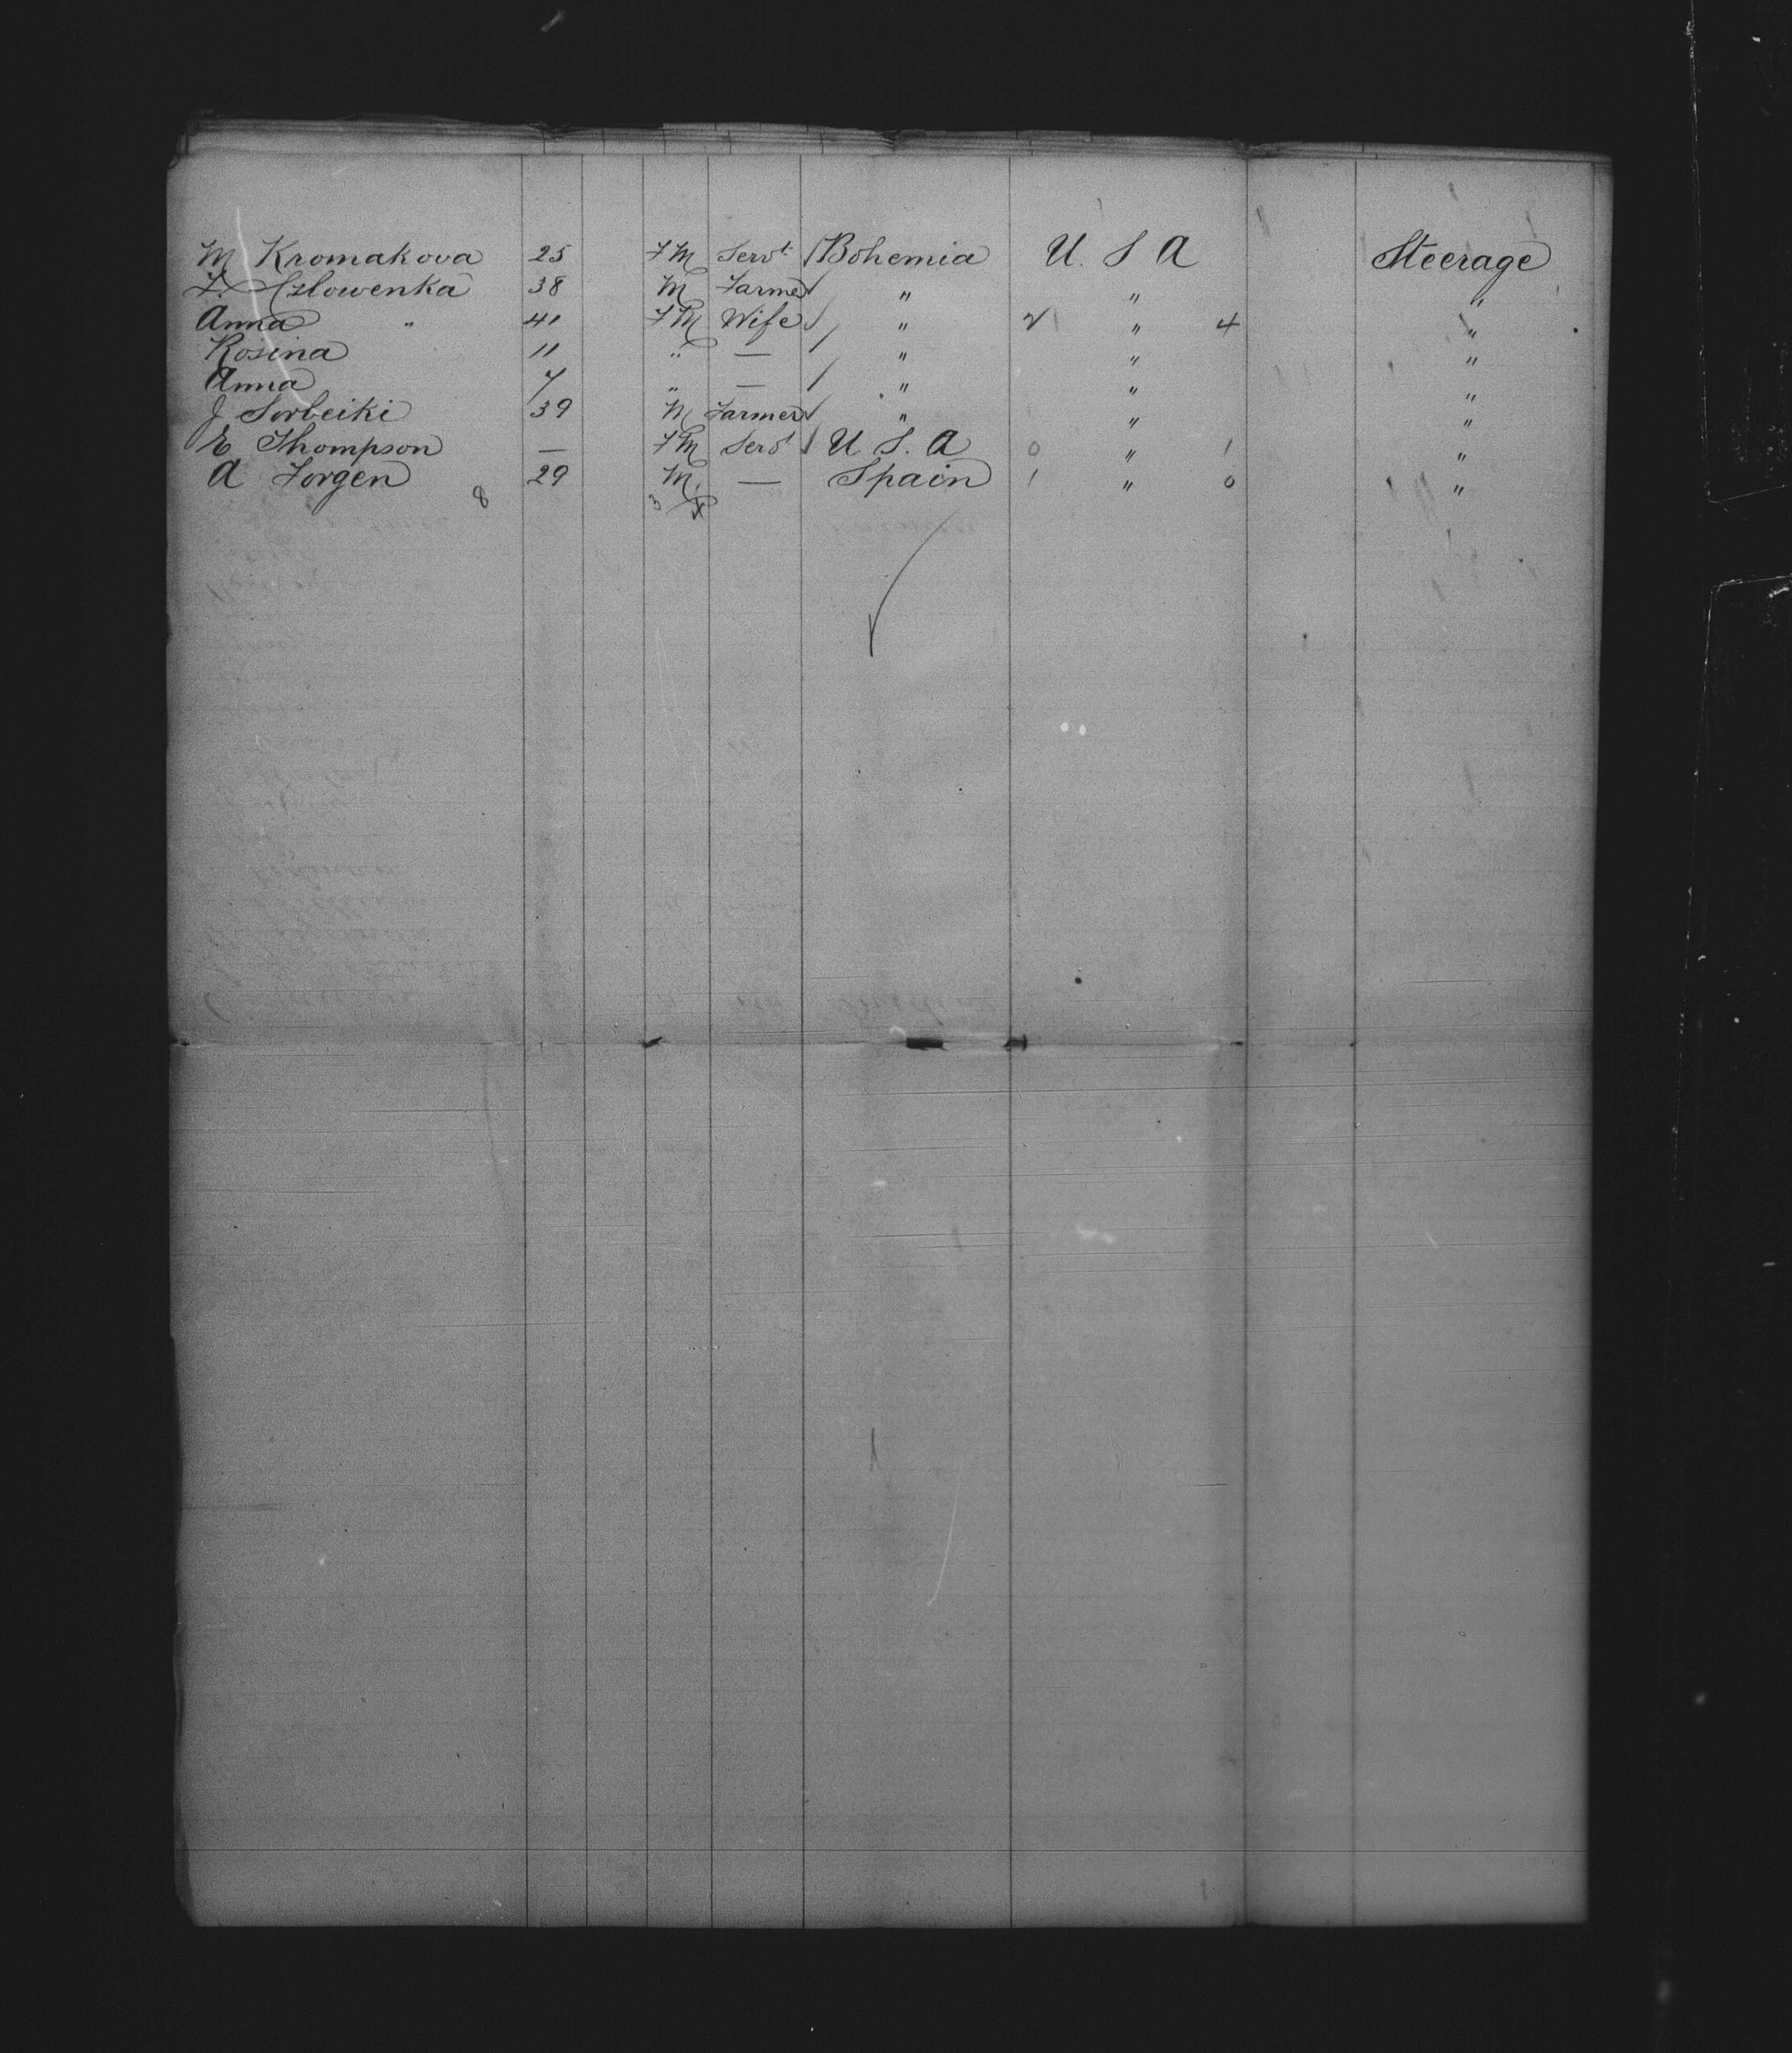 M Kromakova 25 FM Servt Bohemia U. S A Steerage
F. Czlowenka 38 M Farmer " " "
Anna " 41 FM Wife " 2 " 4 "
Rosina 11 " — " " "
Anna 7 " — " " "
J Sorbeiki 39 M Farmer " " "
E Thompson — FM Servt U. S. A 0 " 1 "
A Jorgen 29 M — Spain 1 " 0 "
8 3